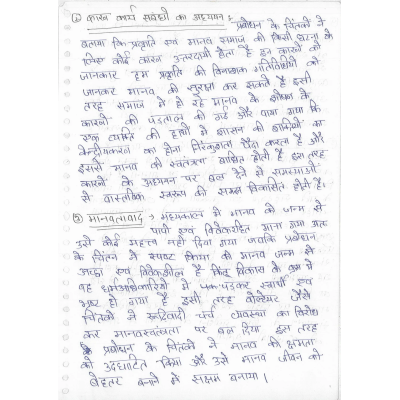 ① कारण कार्य संबंधों का अध्ययन :- प्रबोधन के चिंतकों ने
बताया कि प्रकृति एवं मानव समाज की किसी घटना के
लिए कोई कारण उत्तरदायी होता है इन कारणों को
जानकार हम प्रकृति की विनाशक गतिविधियों को
जानकर मानव की सुरक्षा कर सकते हैं इसी
तरह समाज में हो रहे मानव के शोषण के
कारणों की पड़ताल की गई और पाया गया कि
एक व्यक्ति की हाथों में शासन की शक्तियों का
केन्द्रीयकरण का होना निरंकुशता पैदा करता है और
इससे मानव की स्वतंत्रता बाधित होती है इस तरह
कारणों के अध्ययन पर बल देने से समस्याओं
के वास्तविक स्वरूप की समझ विकसित होती है।
② मानवतावाद → मध्यकाल में मानव को जन्म से
पापी एवं विवेकरहित माना गया अतः
उसे कोई महत्व नहीं दिया गया जबकि प्रबोधन
के चिंतन ने स्पष्ट किया की मानव जन्म से
अच्छा एवं विवेकशील है किंतु विकास के क्रम में
वह धर्मअधिकारियों में पकड़कर स्वार्थी एवं
भ्रष्ट हो गया है इसी तरह वोल्टेयर जैसे
चिंतकों ने रूढ़िवादी चर्च व्यवस्था का विरोध
कर मानवस्वतंत्रता पर बल दिया इस तरह
प्रबोधन के चिंतकों ने मानव की क्षमता
को उद्घाटित किया और उसे मानव जीवन को
बेहतर बनाने में सक्षम बनाया।